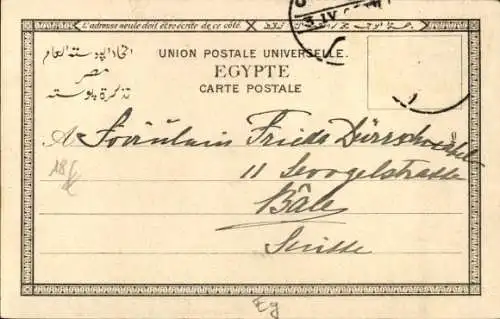 L'adresse seule doit être écrite de ce côté.
اتحاد البوستة العام
مصر
تذكرة بوستة
UNION POSTALE UNIVERSELLE.
EGYPTE
CARTE POSTALE
IV
A Fräulein Frieda
11 Sevogelstrasse
Bâle
Suisse
Eg